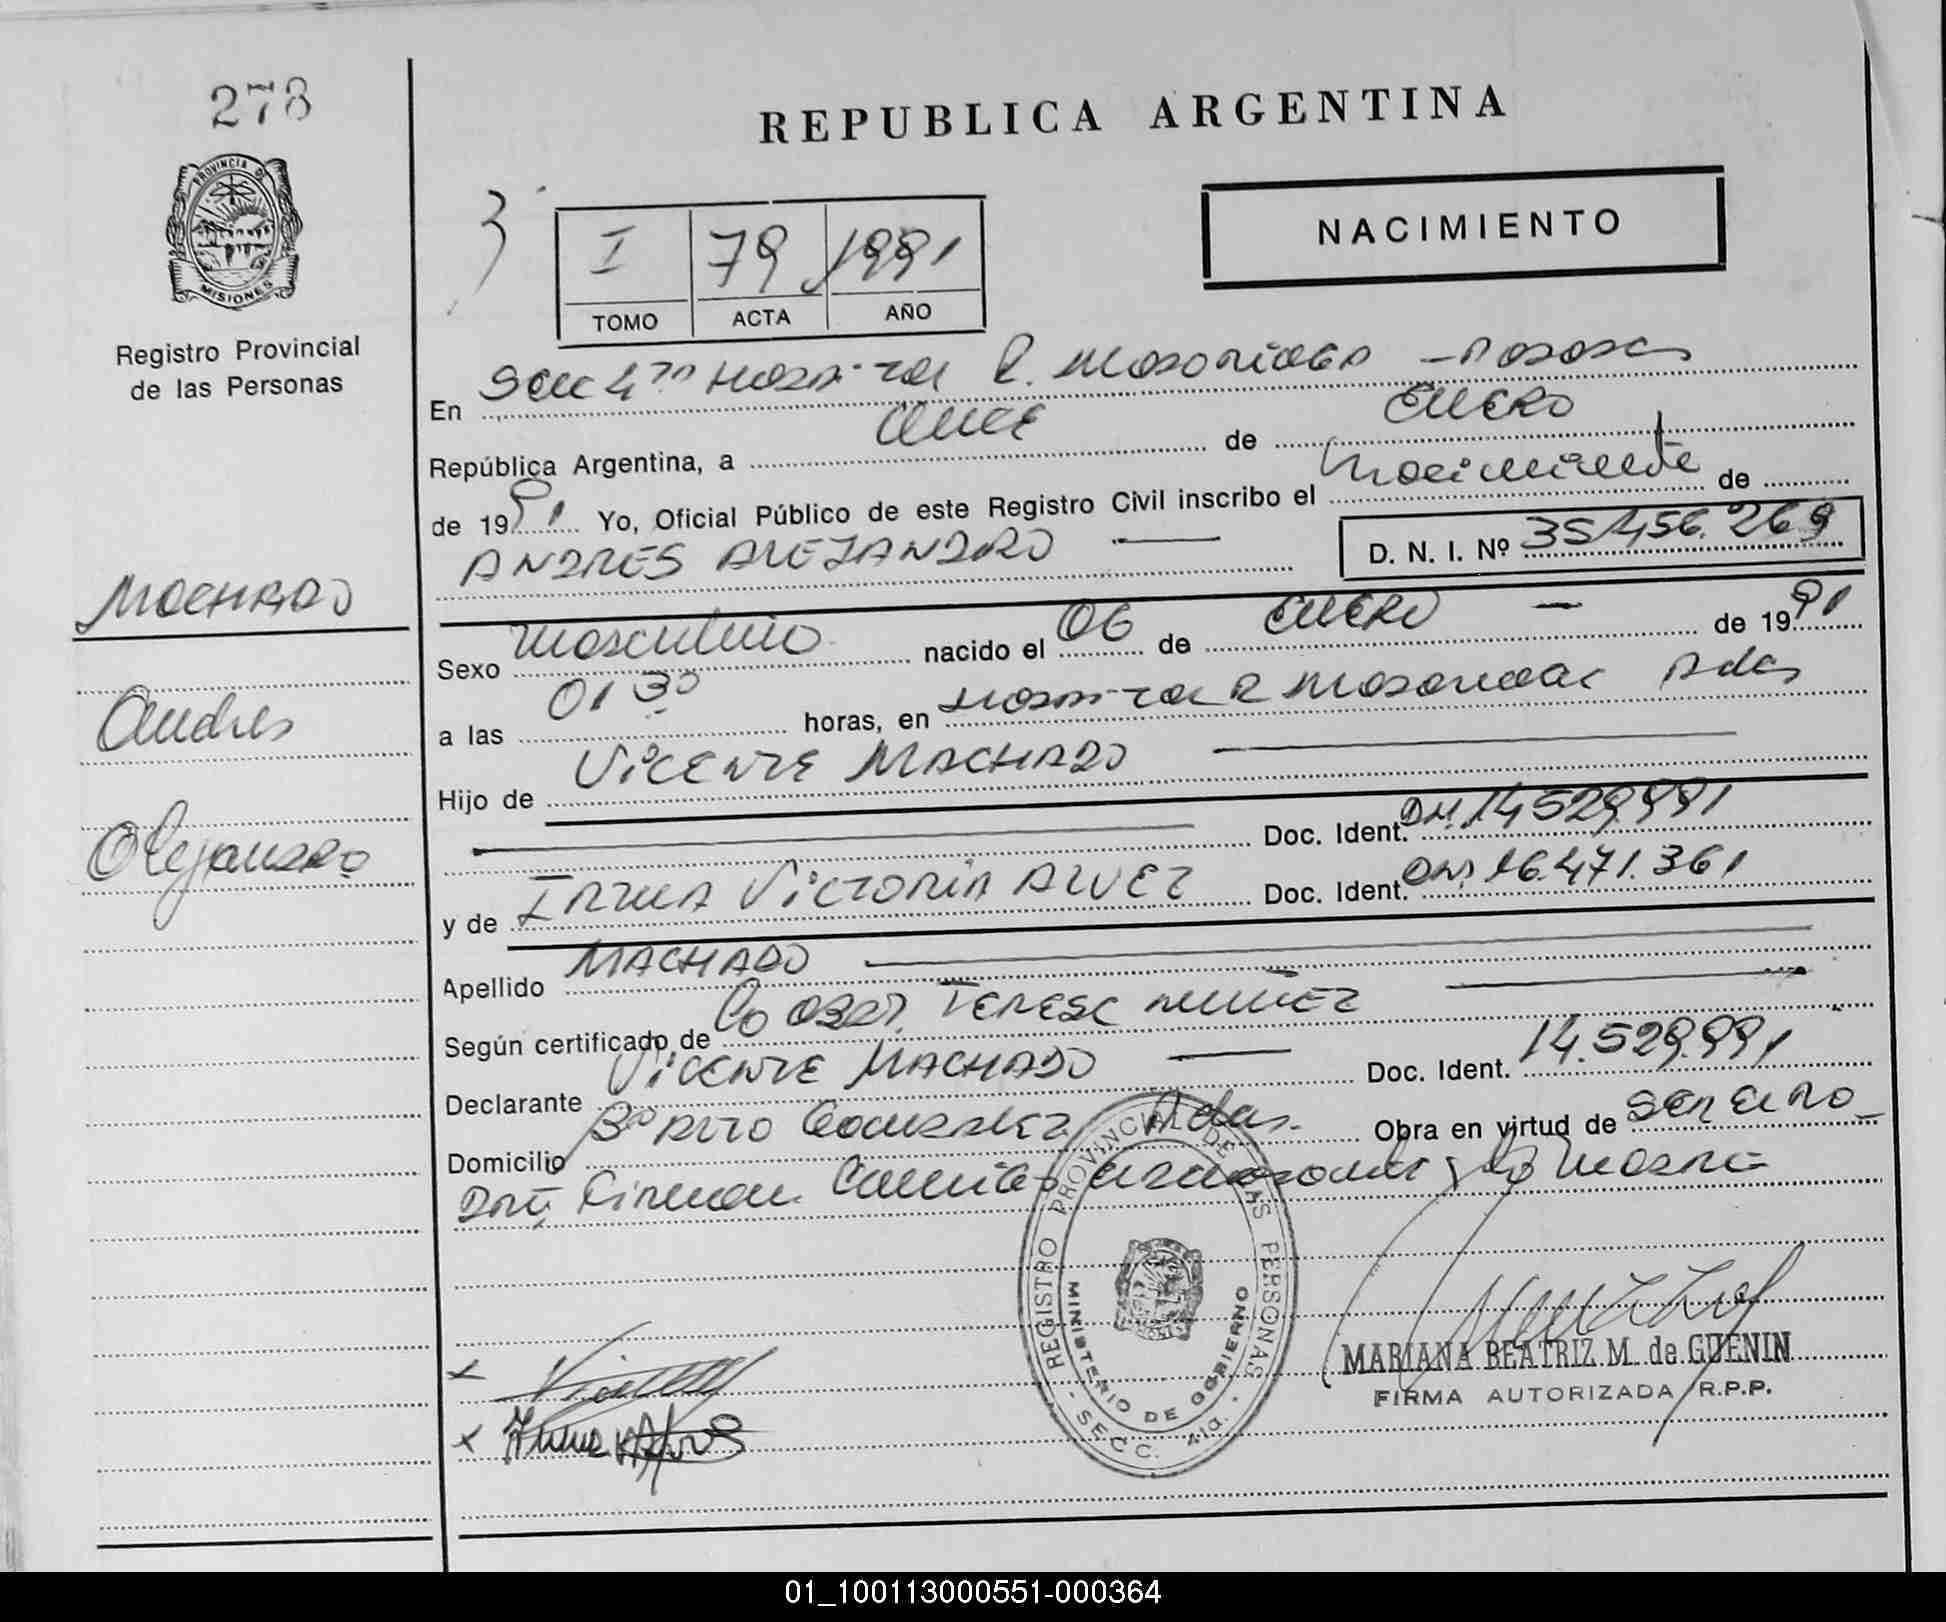 278
REPUBLICA ARGENTINA
PROVINCIA DE MISIONES
Registro Provincial
de las Personas
3
I 79 1991
TOMO ACTA AÑO
NACIMIENTO
En Secc 4ta Hospital R. Madariaga - Posadas
República Argentina, a once de Enero
de 1991 Yo, Oficial Público de este Registro Civil inscribo el nacimiento de
ANDRES ALEJANDRO
D. N. I. Nº 35.456.269
MACHADO
Andres
Alejandro
Sexo masculino nacido el 06 de Enero de 1991
a las 01 30 horas, en Hospital R Madariaga Pdas
Hijo de VICENTE MACHADO
Doc. Ident. DNI. 14.529.991
y de IRMA VICTORIA ALVEZ Doc. Ident. DNI 16.471.361
Apellido MACHADO
Según certificado de la Obst. Teresa Nuñez
Declarante VICENTE MACHADO Doc. Ident. 14.529.991
Domicilio Bº Rizo Gonzalez Pdas. Obra en virtud de ser el pro-
Firman y la madre
REGISTRO PROVINCIAL DE LAS PERSONAS
MINISTERIO DE GOBIERNO
- SECC. 4ta. -
x
x
MARIANA BEATRIZ M. de GUENIN
FIRMA AUTORIZADA R.P.P.
01_100113000551-000364